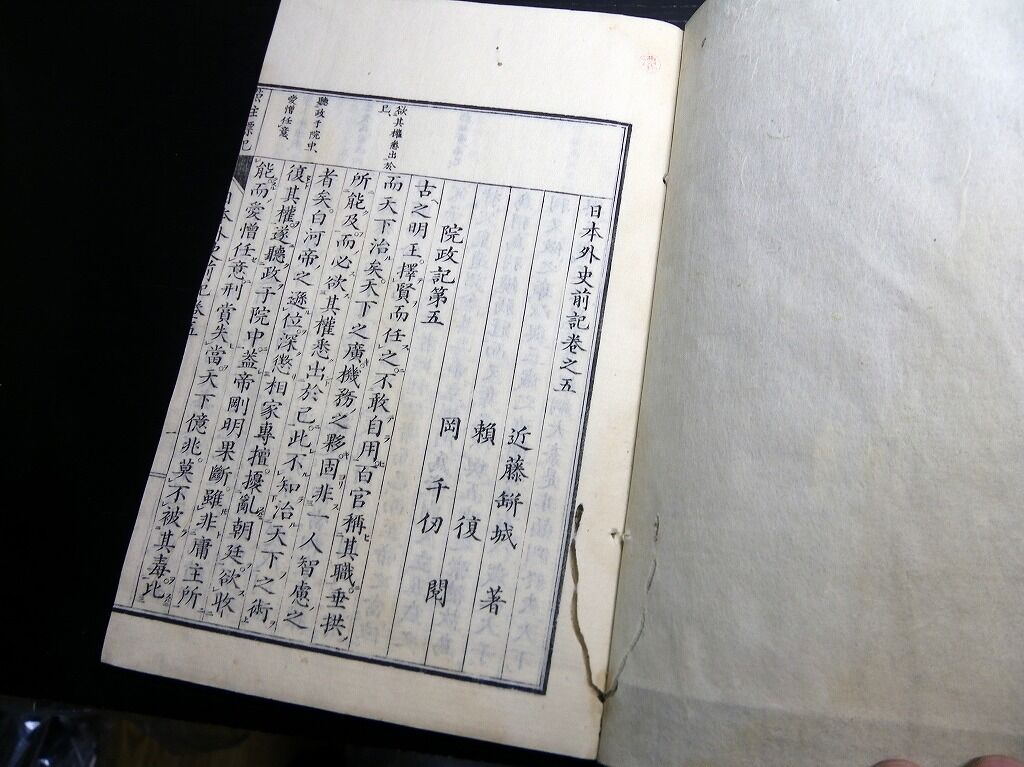 日本外史前記卷之五
近藤缾城 著
賴 復
岡 千仞 閱
院政記第五
古之明王。擇賢而任之。不敢自用。百官稱其職。垂拱
而天下治矣。天下之廣。機務之夥。固非一人智慮之
所能及。而必欲其權悉出於己。此不知治天下之術
者矣。白河帝之遜位。深懲相家專擅。擾亂朝廷。欲收
復其權。遂聽政于院中。蓋帝剛明果斷。雖非庸主所
能。而愛憎任意。刑賞失當。天下億兆。莫不被其毒。此
欲其權悉出於
己、
聽政于院中、
愛憎任意、
日本外史前記卷五
一